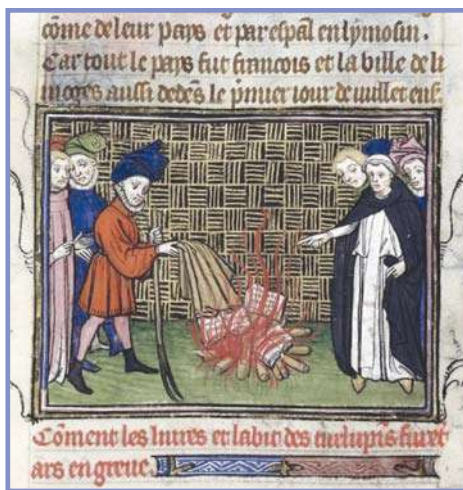 cōme de leur pays et par espāl en lymosin .
Car tout le pays fut francois et la ville de li
moges aussi dedēs le p̄mier iour de iuillet
Cōment les liures et labit des turlupīs furēt
ars en greue.